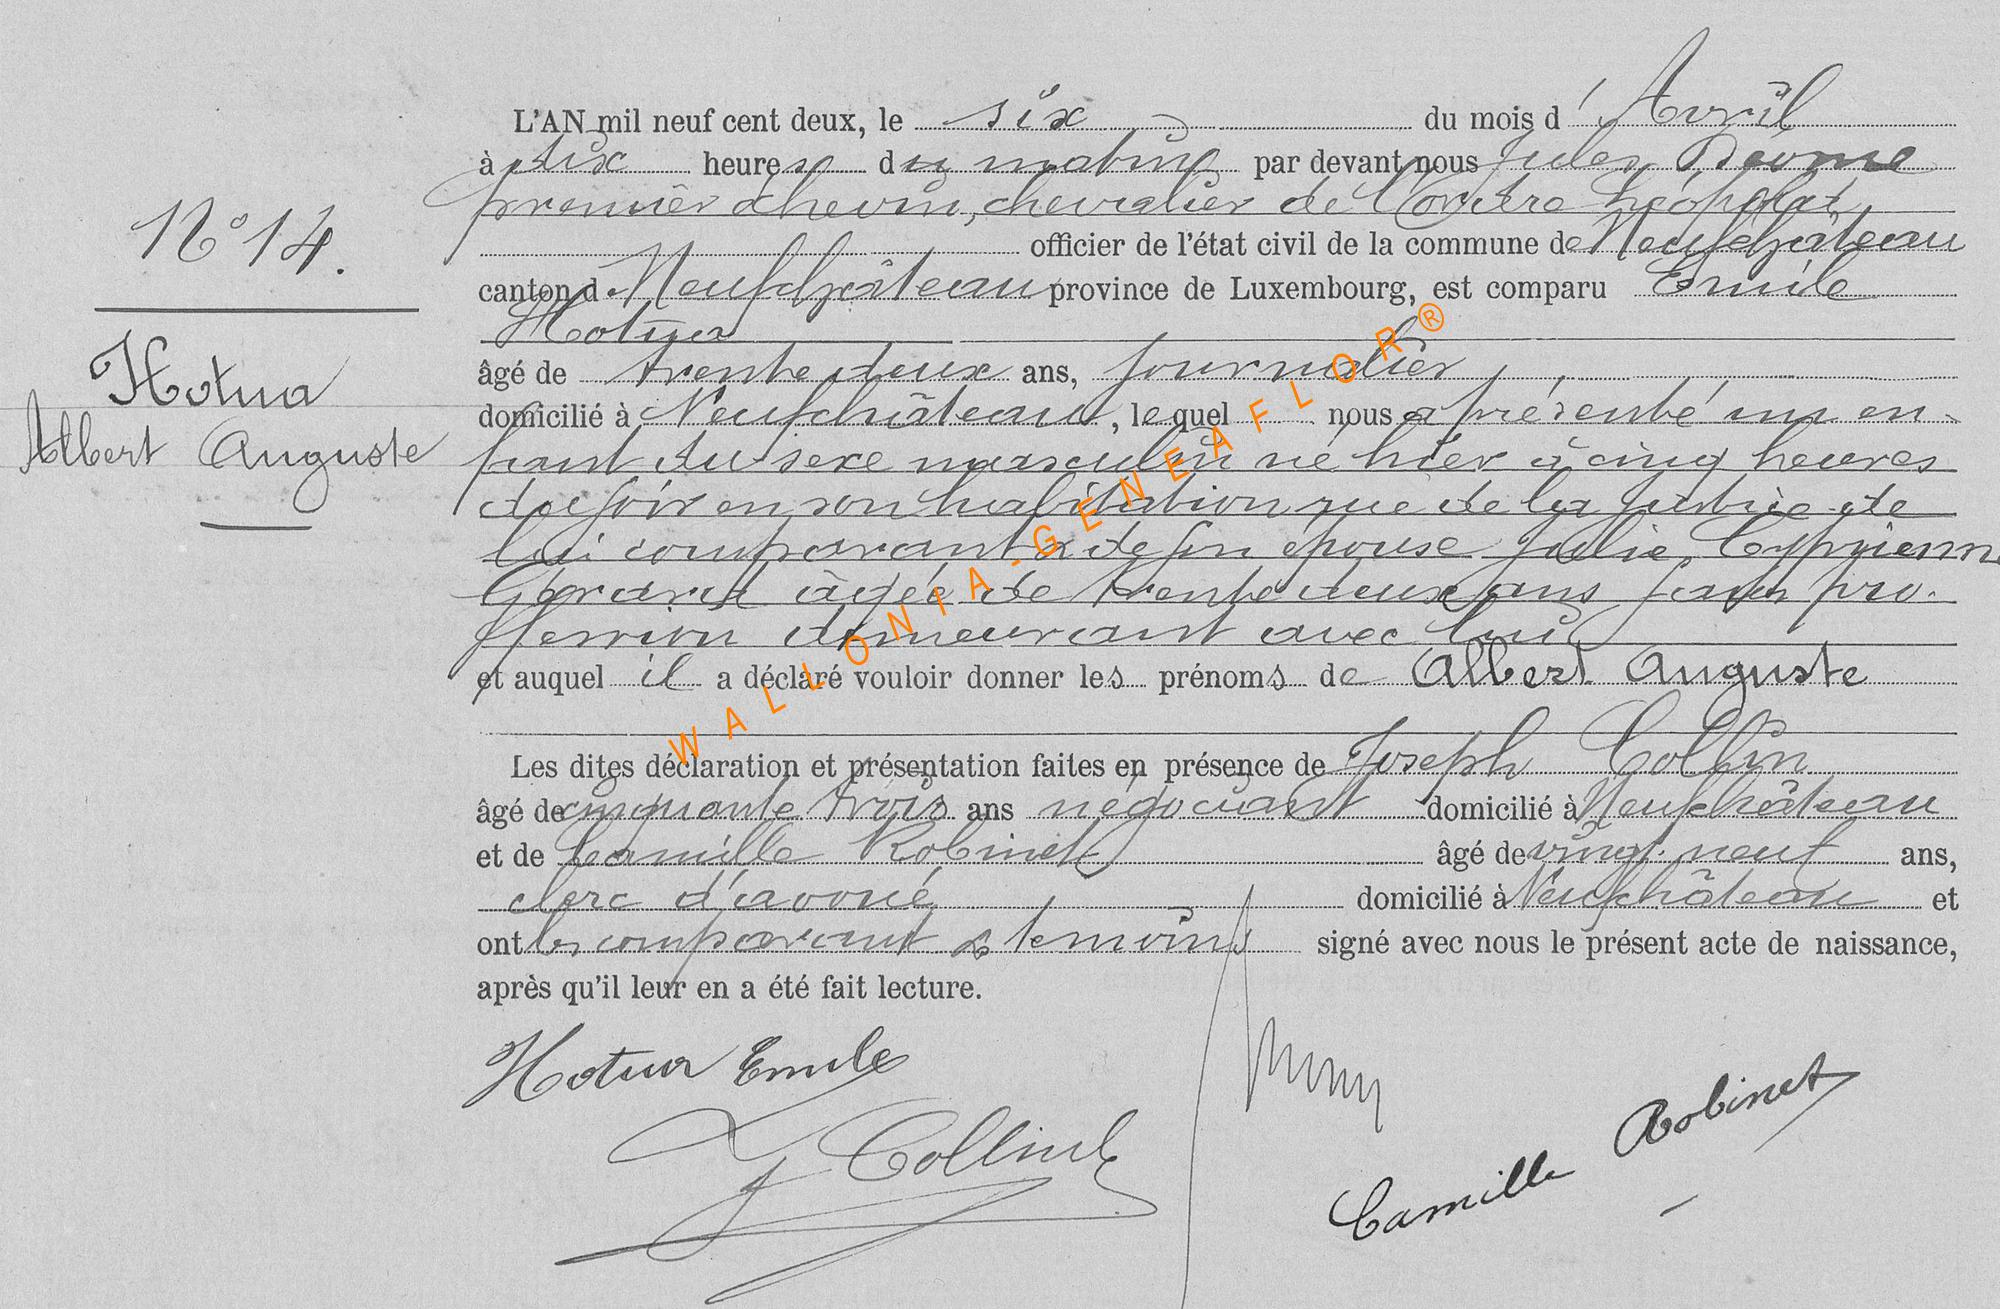 N° 14.
Hotua
Albert Auguste
L'AN mil neuf cent deux, le six du mois d'Avril
à dix heures du matin par devant nous Jules
premier échevin, chevalier de l'ordre Léopold
officier de l'état civil de la commune de Neufchâteau
canton d. Neufchâteau province de Luxembourg, est comparu Emile
Hotua
âgé de trente deux ans, journalier
domicilié à Neufchâteau, lequel nous a présenté un en-
fant du sexe masculin né hier à cinq heures
du soir en son habitation rue de la Justice de
lui comparant & de son épouse Julie, Cyprienne
Gérard âgée de trente deux ans sans pro-
fession demeurant avec lui
et auquel il a déclaré vouloir donner les prénoms de Albert Auguste
Les dites déclaration et présentation faites en présence de Joseph Collin
âgé de cinquante trois ans négociant domicilié à Neufchâteau
et de Camille Robinet âgé de vingt neuf ans,
clerc d'avoué domicilié à Neufchâteau et
ont les comparant & temoins signé avec nous le présent acte de naissance,
après qu'il leur en a été fait lecture.
Hotua Emile
J Collin
Camille Robinet
WALLONIA-GENEAFLOR®